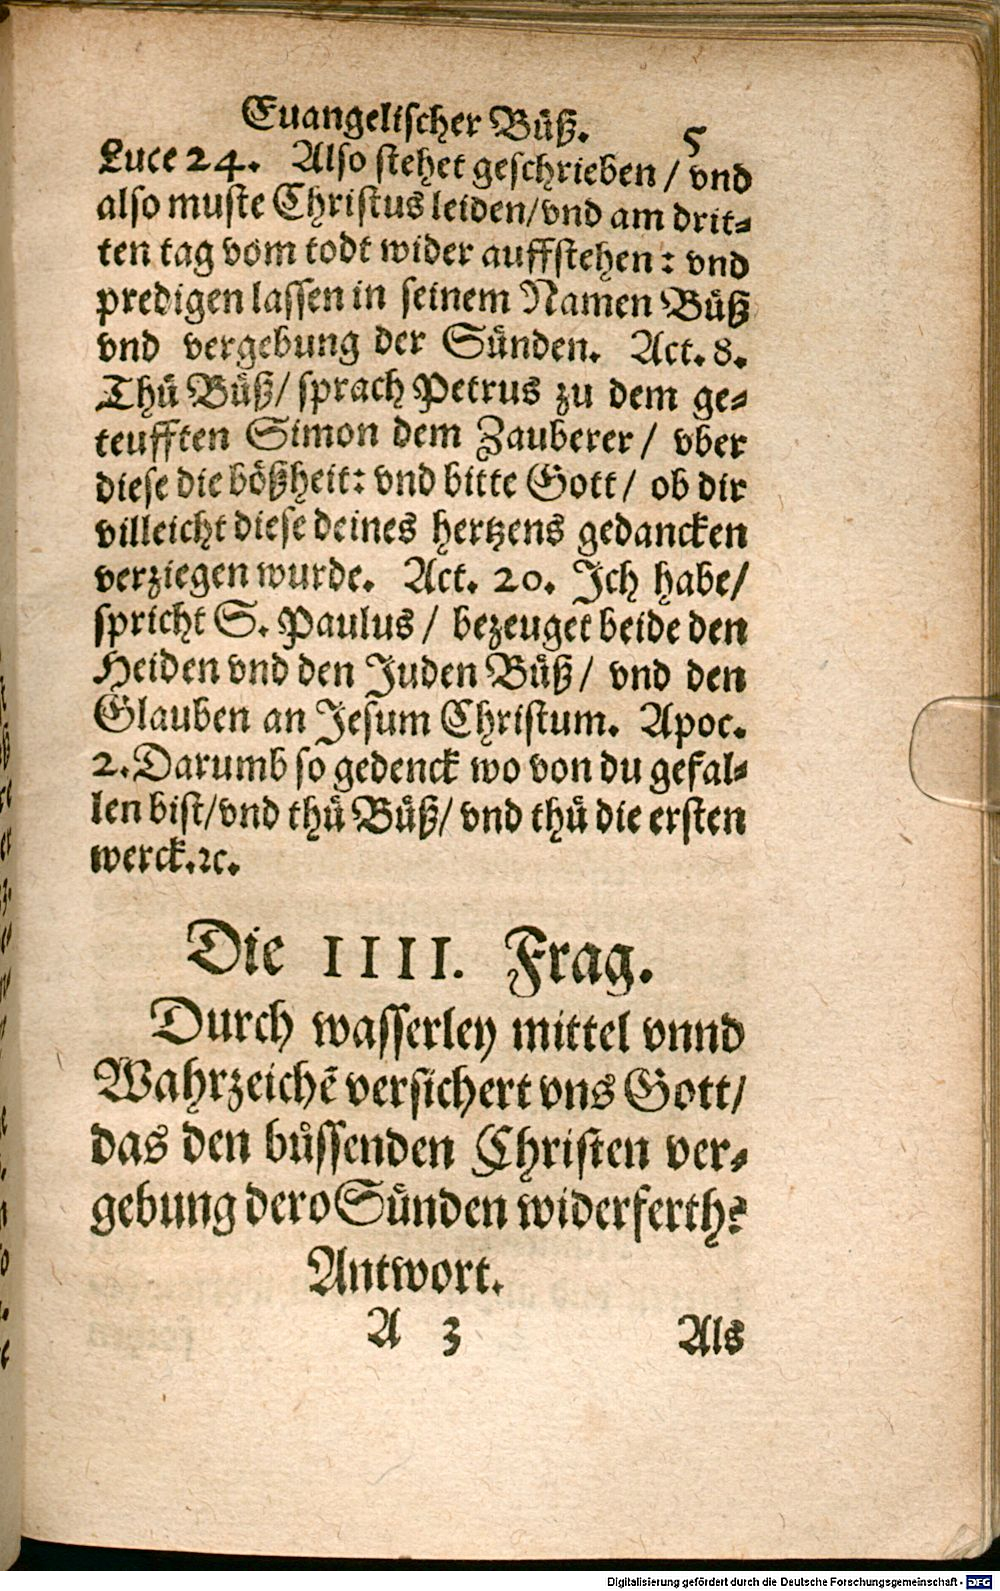 Euangelischer Bůß. 5
Luce 24. Also stehet geschrieben / vnd
also muste Christus leiden/vnd am drit⸗
ten tag vom todt wider auffstehen: vnd
predigen lassen in seinem Namen Bůß
vnd vergebung der Sünden. Act. 8.
Thů Bůß/ sprach Petrus zu dem ge⸗
teufften Simon dem Zauberer / vber
diese die bößheit: vnd bitte Gott/ ob dir
villeicht diese deines hertzens gedancken
verziegen wurde. Act. 20. Ich habe/
spricht S. Paulus / bezeuget beide den
Heiden vnd den Juden Bůß/ vnd den
Glauben an Jesum Christum. Apoc.
2. Darumb so gedenck wo von du gefal⸗
len bist/vnd thů Bůß/ vnd thů die ersten
werck.ꝛc.
Die IIII. Frag.
Durch wasserley mittel vnnd
Wahrzeichẽ versichert vns Gott/
das den büssenden Christen ver⸗
gebung dero Sünden widerferth?
Antwort.
A 3 Als
Digitalisierung gefördert durch die Deutsche Forschungsgemeinschaft - DFG